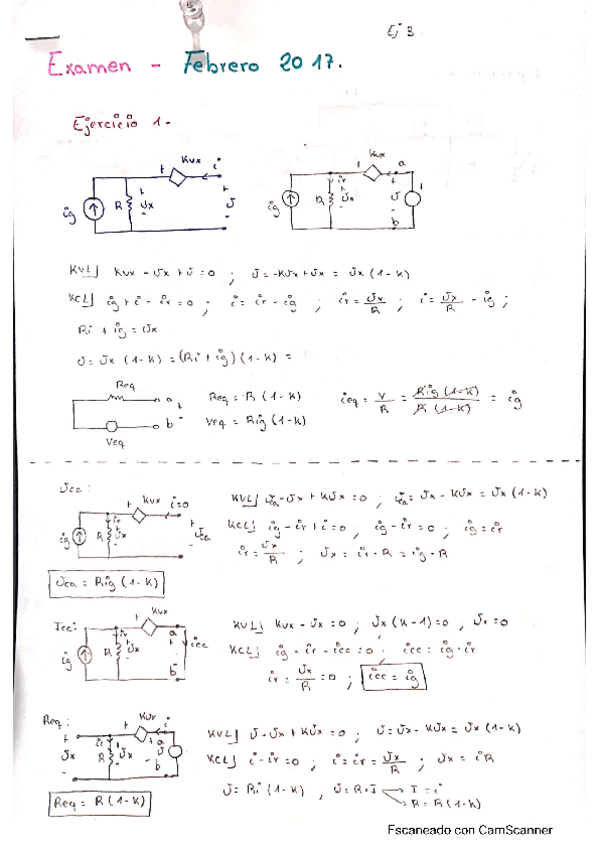 Ej 3
Examen - Febrero 2017.
Ejercicio 1-
+ Kvx i
ig R + vx - + v -
+ Kvx a
ig ir R + vx - + v - b
KVL] Kvx - vx + v = 0 ; v = -Kvx + vx = vx (1-K)
KCL] ig + i - ir = 0 ; i = ir - ig ; ir = vx/R ; i = vx/R - ig ;
Ri + ig = vx
v = vx (1-K) = (Ri + ig) (1-K) =
Req a + b - Veq
Req = R (1-K)
Veq = Rig (1-K)
ieq = V/R = Rig (1-K)/R (1-K) = ig
Vca:
+ Kvx i=0
ig ir R + vx - + vca -
KVL] vca - vx + Kvx = 0 ; vca = vx - Kvx = vx (1-K)
KCL] ig - ir + i = 0 ; ig - ir = 0 ; ig = ir
ir = vx/R ; vx = ir · R = ig · R
vca = Rig (1-K)
Icc:
+ Kvx a
ig ir R + vx - icc b
KVL] Kvx - vx = 0 ; vx (K-1) = 0 , vx = 0
KCL] ig - ir - icc = 0 ; icc = ig - ir
ir = vx/R = 0 ; icc = ig
Req:
+ Kvx i
+ vx - ir R + vx - + a v - b
KVL] v - vx + Kvx = 0 ; v = vx - Kvx = vx (1-K)
KCL] i - ir = 0 ; i = ir = vx/R ; vx = iR
v = Ri (1-K) , v = R · I → I = i
→ R = R (1-K)
Req = R (1-K)
Escaneado con CamScanner